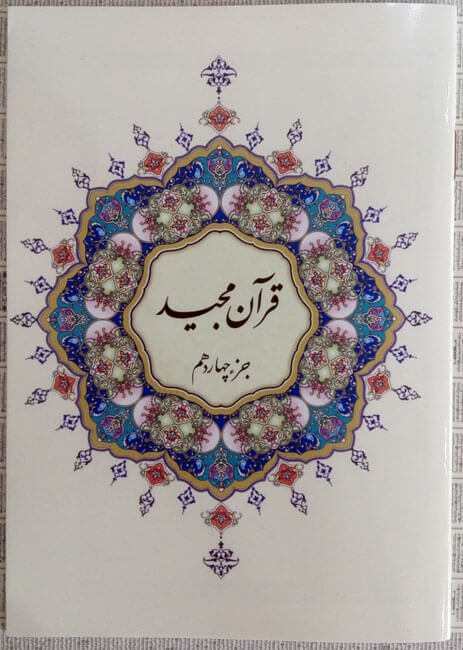 قرآن مجید
جزء چهاردهم